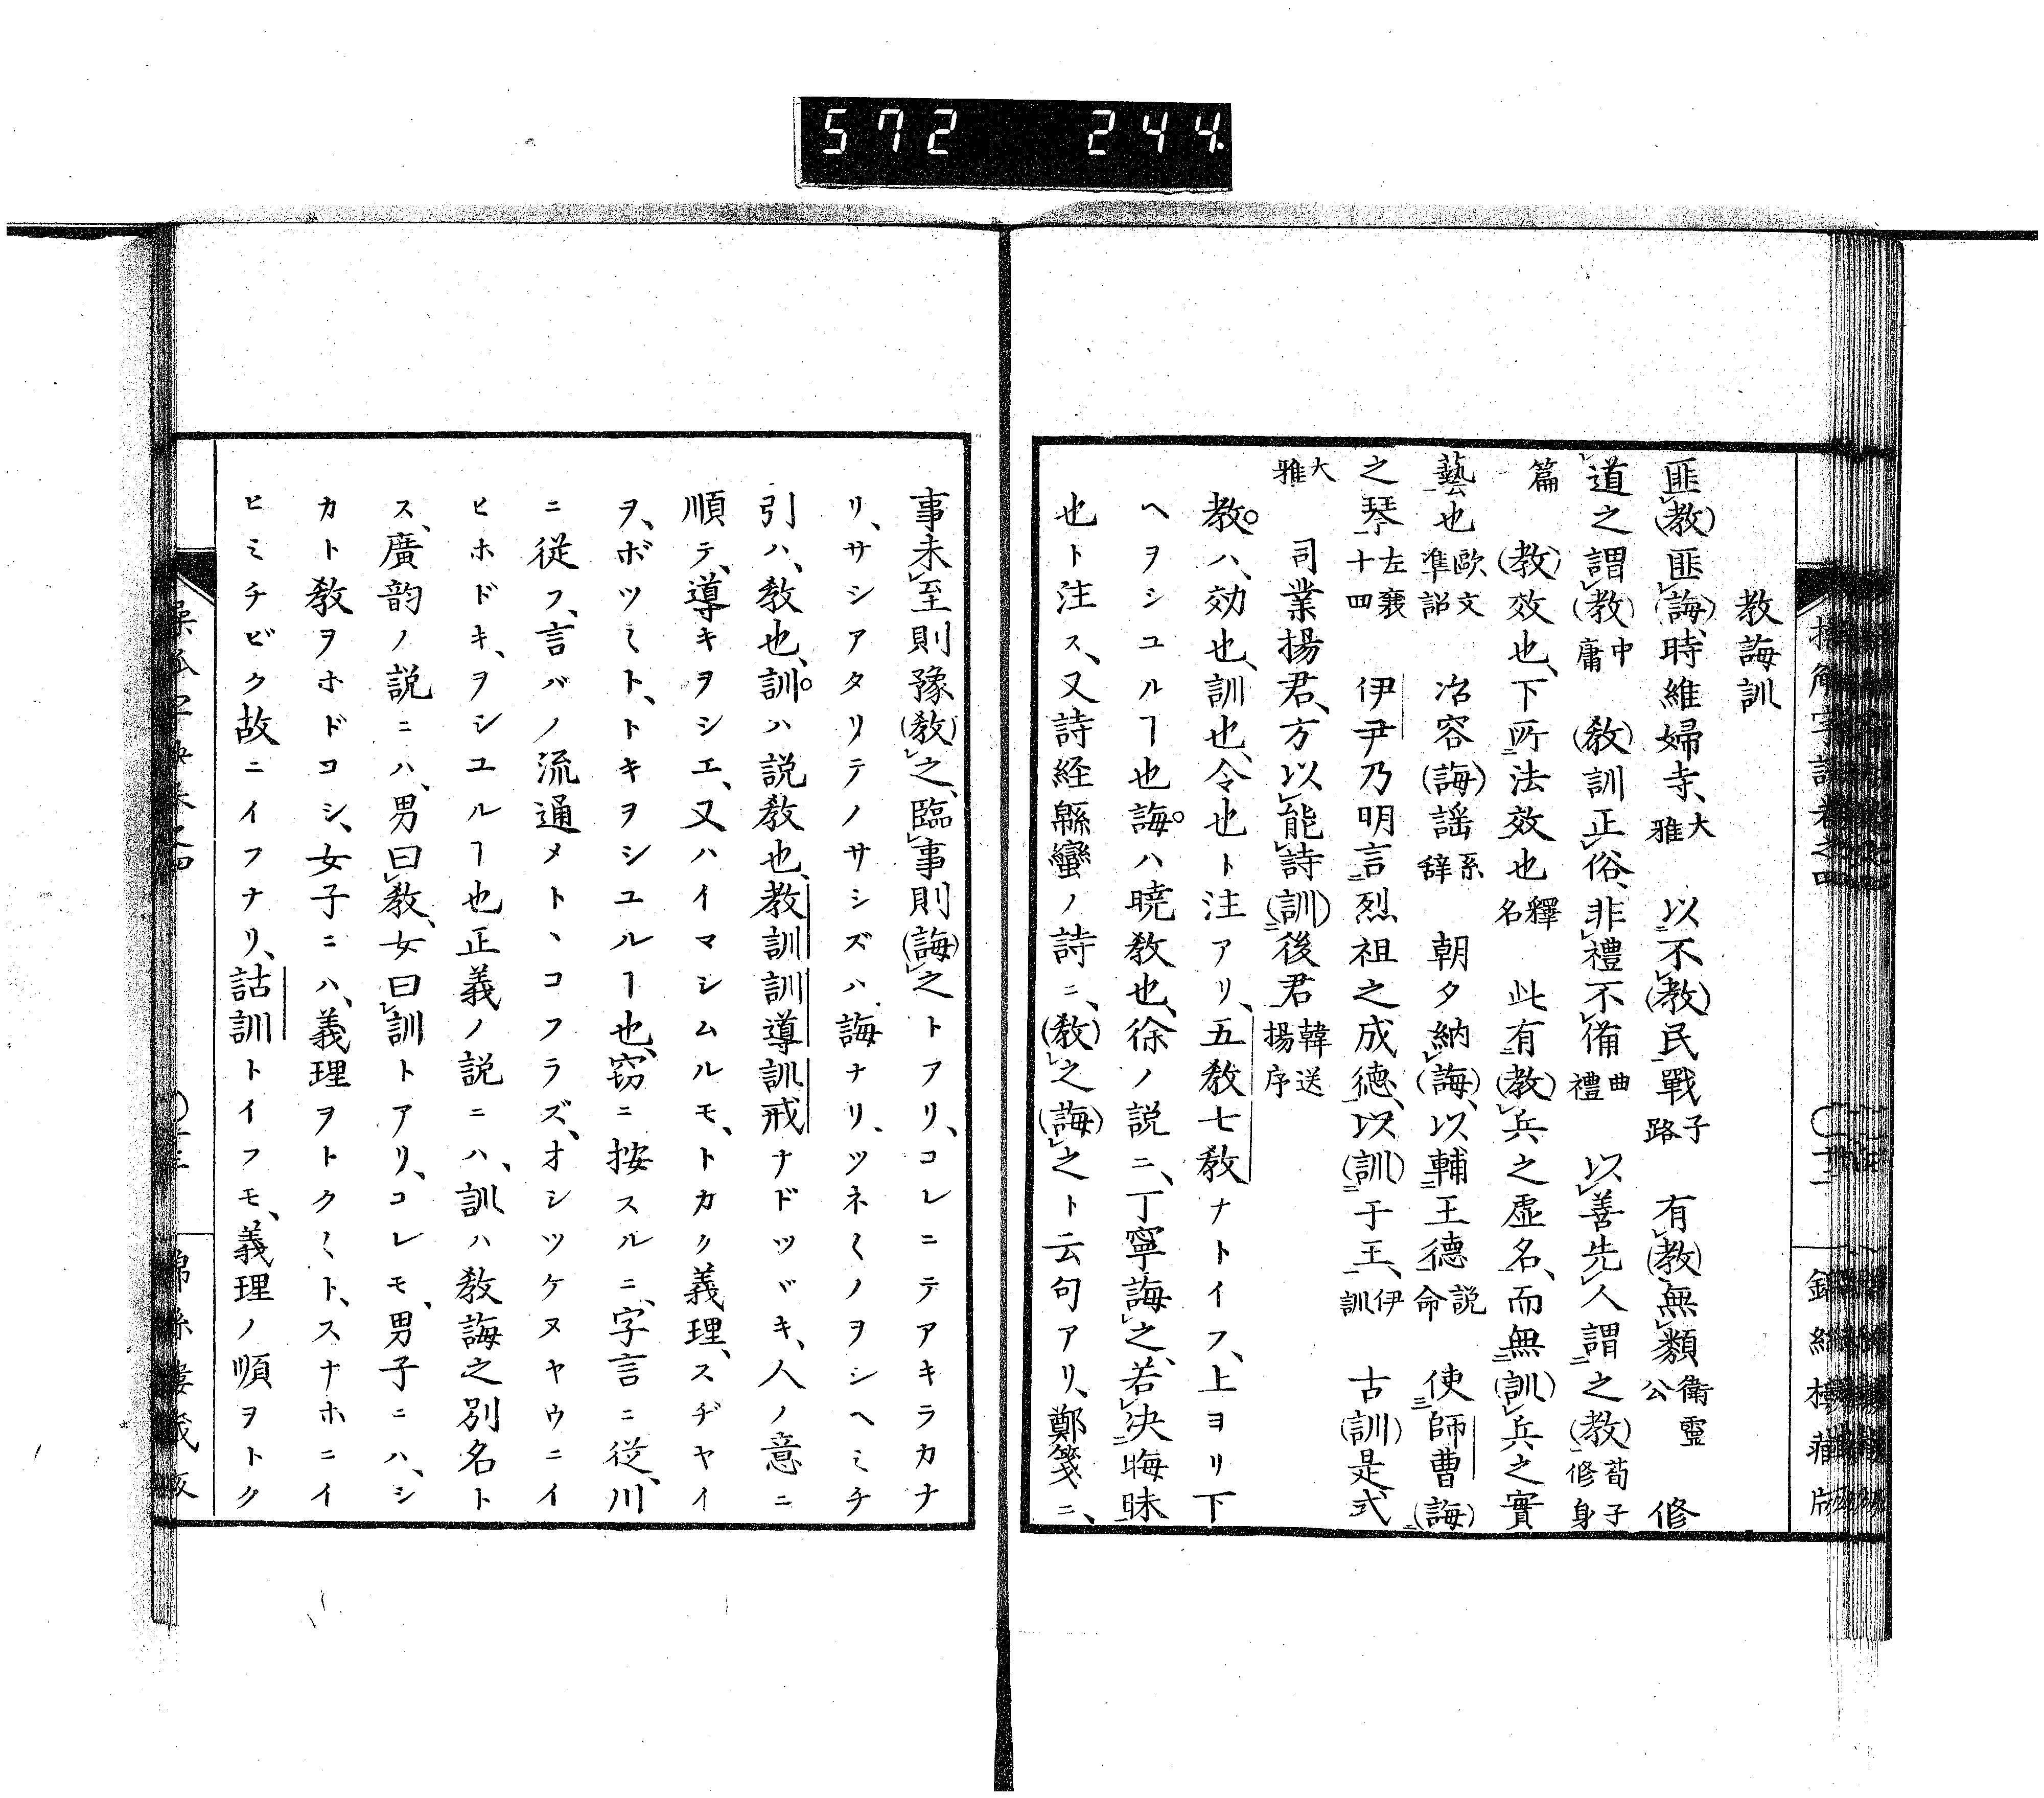 572 244.
教誨訓
匪(教)匪(誨)、時維婦寺、大雅 以不(教)民戰子路 有(教)無類衛靈公 修
道之謂(教)中庸 (教)訓正俗、非禮不備曲禮 以善先人謂之(教)荀子修身
篇 (教)效也、下所法效也釋名 此有(教)兵之虚名、而無(訓)兵之實
藝也歐文準詔 冶容(誨)謡系辞 朝夕納(誨)、以輔王德説命 使師曹(誨)
之琴左襄十四 伊尹乃明言烈祖之成德、以(訓)于王、伊訓 古(訓)是式
大雅 司業揚君、方以能詩(訓)後君韓送揚序
教ハ、効也、訓也、令也ト注アリ、五教七教ナトイフ、上ヨリ下
ヘヲシユルヿ也誨ハ曉教也、徐ノ説ニ、丁寧誨之、若決晦昧
也ト注ス、又詩経緜蠻ノ詩ニ、(教)之(誨)之ト云句アリ、鄭箋ニ、
事未至則豫(教)之、臨事則(誨)之トアリ、コレニテアキラカナ
リ、サシアタリテノサシズハ、誨ナリ、ツネ〱ノヲシヘミチ
引ハ、教也、訓ハ説教也、教訓訓導訓戒ナドツヾキ、人ノ意ニ
順テ、導キヲシエ、又ハイマシムルモ、トカク義理、スヂヤイ
ヲ、ボツ〱ト、トキヲシユルヿ也、窃ニ按スルニ、字言ニ従、川
ニ従フ、言バノ流通メトヽコフラズ、オシツケヌヤウニイ
ヒホドキ、ヲシユルヿ也正義ノ説ニハ、訓ハ教誨之別名ト
ス、廣韵ノ説ニハ、男曰教、女曰訓トアリ、コレモ、男子ニハ、シ
カト教ヲホドコシ、女子ニハ、義理ヲトク〱ト、スナホニイ
ヒミチビク故ニイフナリ、詁訓トイフモ、義理ノ順ヲトク